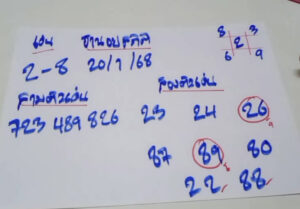 เด่น
2-8 20/1/68
8 3
2
6 9
สามตัวเด่น สองตัวเด่น
723 489 826 23 24 26
87 89 80
22 88